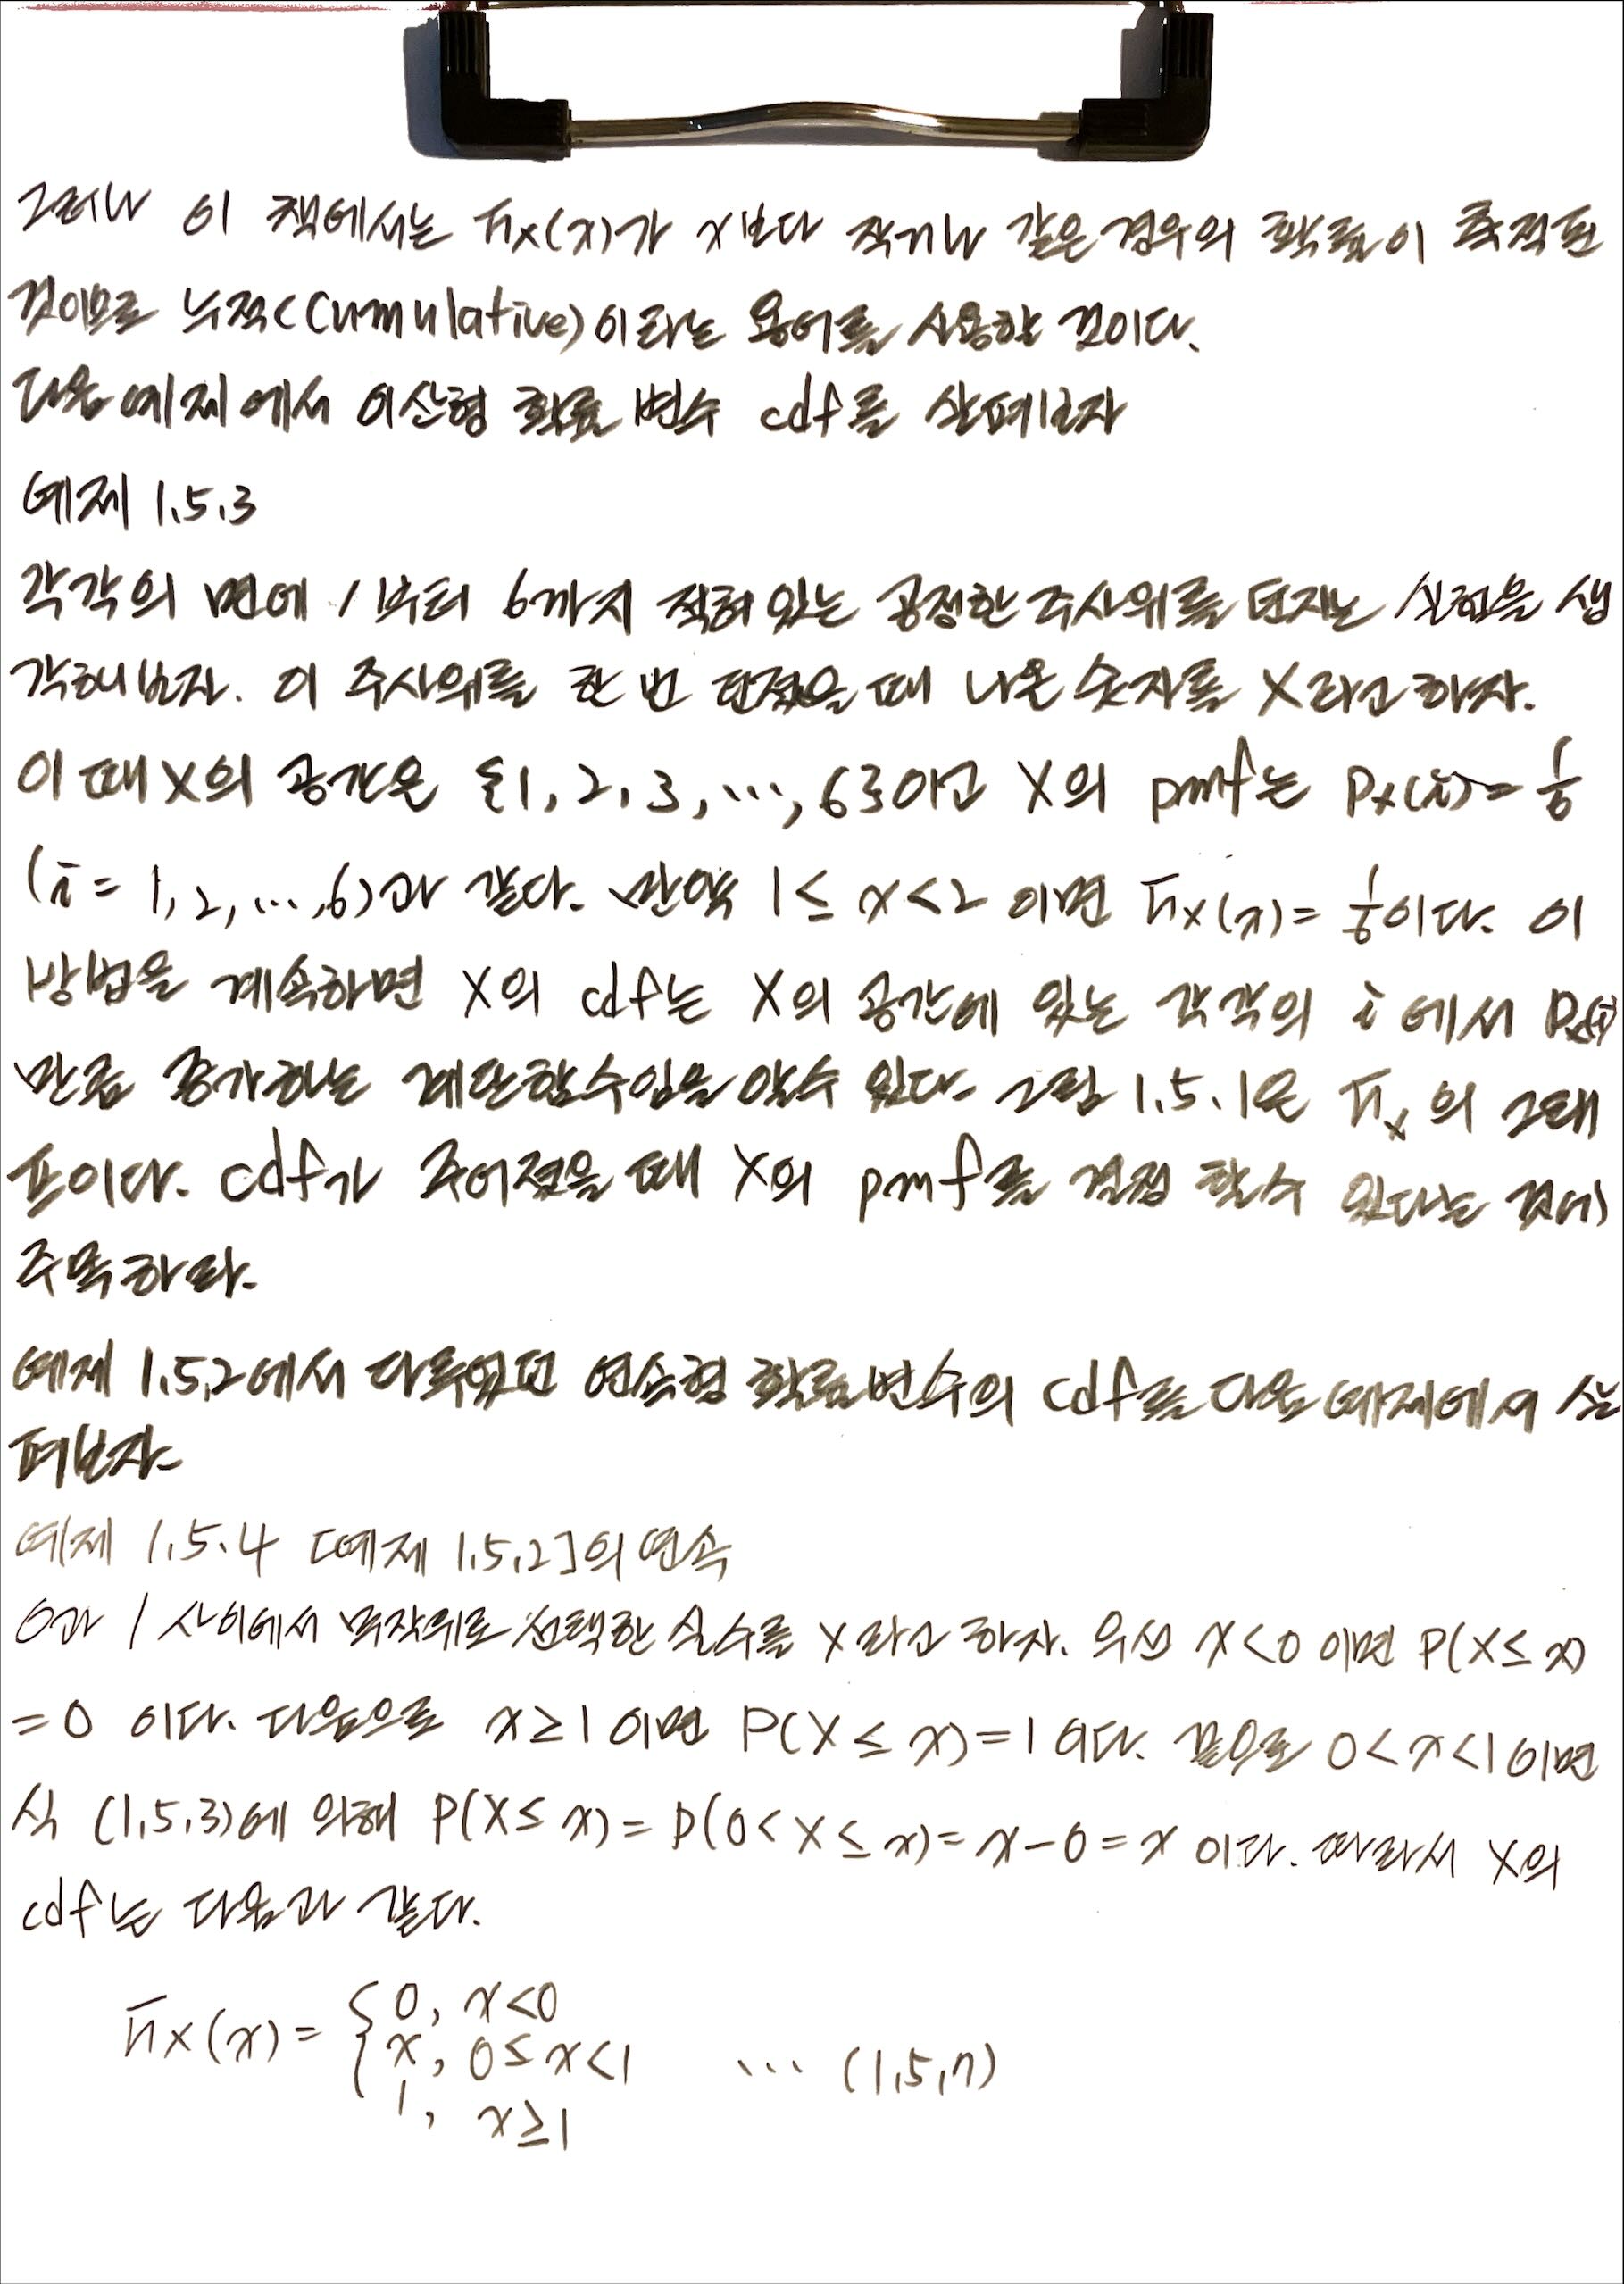 그러나 이 책에서는 Fx(x)가 x보다 작거나 같은 경우의 확률이 축적된
것이므로 누적(Cumulative)이라는 용어를 사용한 것이다.
다음 예제에서 이산형 확률 변수 cdf를 살펴보자
예제 1.5.3
각각의 면에 1부터 6까지 적혀 있는 공정한 주사위를 던지는 실험을 생
각해보자. 이 주사위를 한 번 던졌을 때 나온 숫자를 X라고 하자.
이 때 X의 공간은 {1, 2, 3, ..., 6}이고 X의 pmf는 Px(i) = 1/6
(i = 1, 2, ..., 6)과 같다. 만약 1 ≤ x < 2 이면 Fx(x) = 1/6이다. 이
방법을 계속하면 X의 cdf는 X의 공간에 있는 각각의 i 에서 Px(i)
만큼 증가하는 계단함수임을 알수 있다. 그림 1.5.1은 Fx의 그래
프이다. cdf가 주어졌을 때 X의 pmf를 결정 할수 있다는 것에
주목하라.
예제 1.5.2에서 다루었던 연속형 확률변수의 cdf를 다음 예제에서 살
펴보자.
예제 1.5.4 [예제 1.5.2]의 연속
0과 1 사이에서 무작위로 선택한 실수를 X라고 하자. 우선 x<0 이면 P(X≤x)
=0 이다. 다음으로 x≥1 이면 P(X ≤ x) = 1 이다. 끝으로 0<x<1 이면
식 (1.5.3)에 의해 P(X≤ x) = P(0< X ≤ x) = x-0 = x 이다. 따라서 X의
cdf는 다음과 같다.
Fx(x) = { 0, x<0
x, 0≤x<1 ... (1.5.7)
1, x≥1